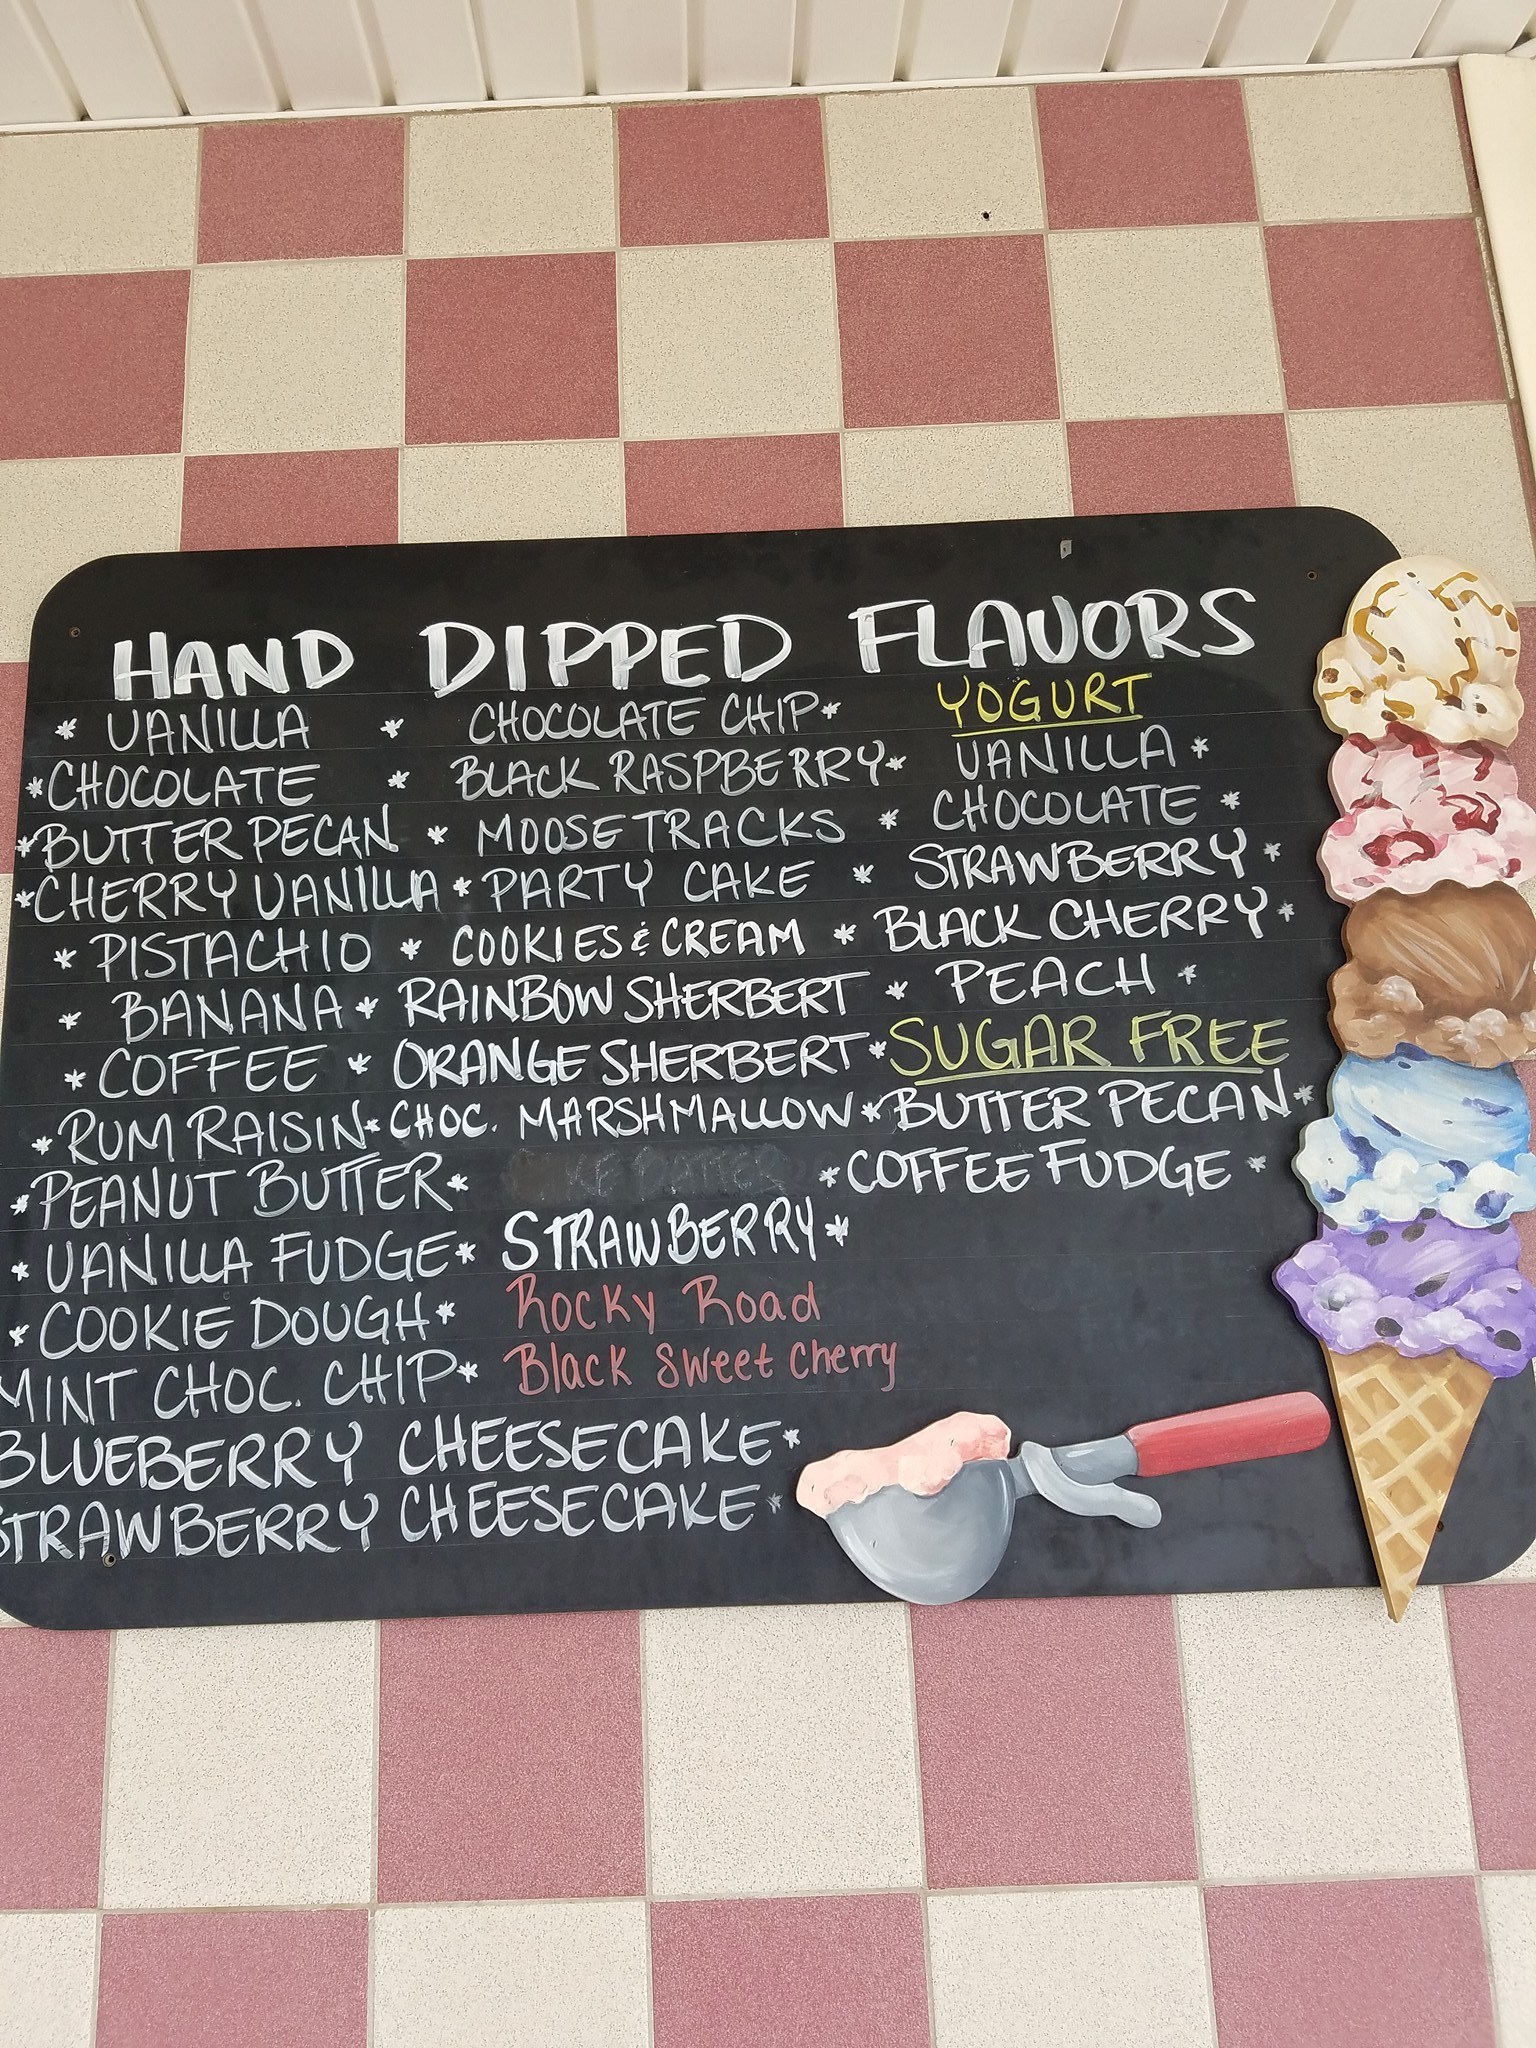 HAND DIPPED FLAVORS
* VANILLA *
* CHOCOLATE *
* BUTTER PECAN *
* CHERRY VANILLA *
* PISTACHIO *
* BANANA *
* COFFEE *
* RUM RAISIN *
* PEANUT BUTTER *
* VANILLA FUDGE *
* COOKIE DOUGH *
MINT CHOC. CHIP *
BLUEBERRY CHEESECAKE *
STRAWBERRY CHEESECAKE *
CHOCOLATE CHIP *
BLACK RASPBERRY *
MOOSE TRACKS *
PARTY CAKE *
COOKIES & CREAM *
RAINBOW SHERBERT *
ORANGE SHERBERT *
CHOC. MARSHMALLOW *
STRAWBERRY *
Rocky Road
Black Sweet Cherry
YOGURT
VANILLA *
CHOCOLATE *
STRAWBERRY *
BLACK CHERRY *
PEACH *
SUGAR FREE
BUTTER PECAN *
* COFFEE FUDGE *